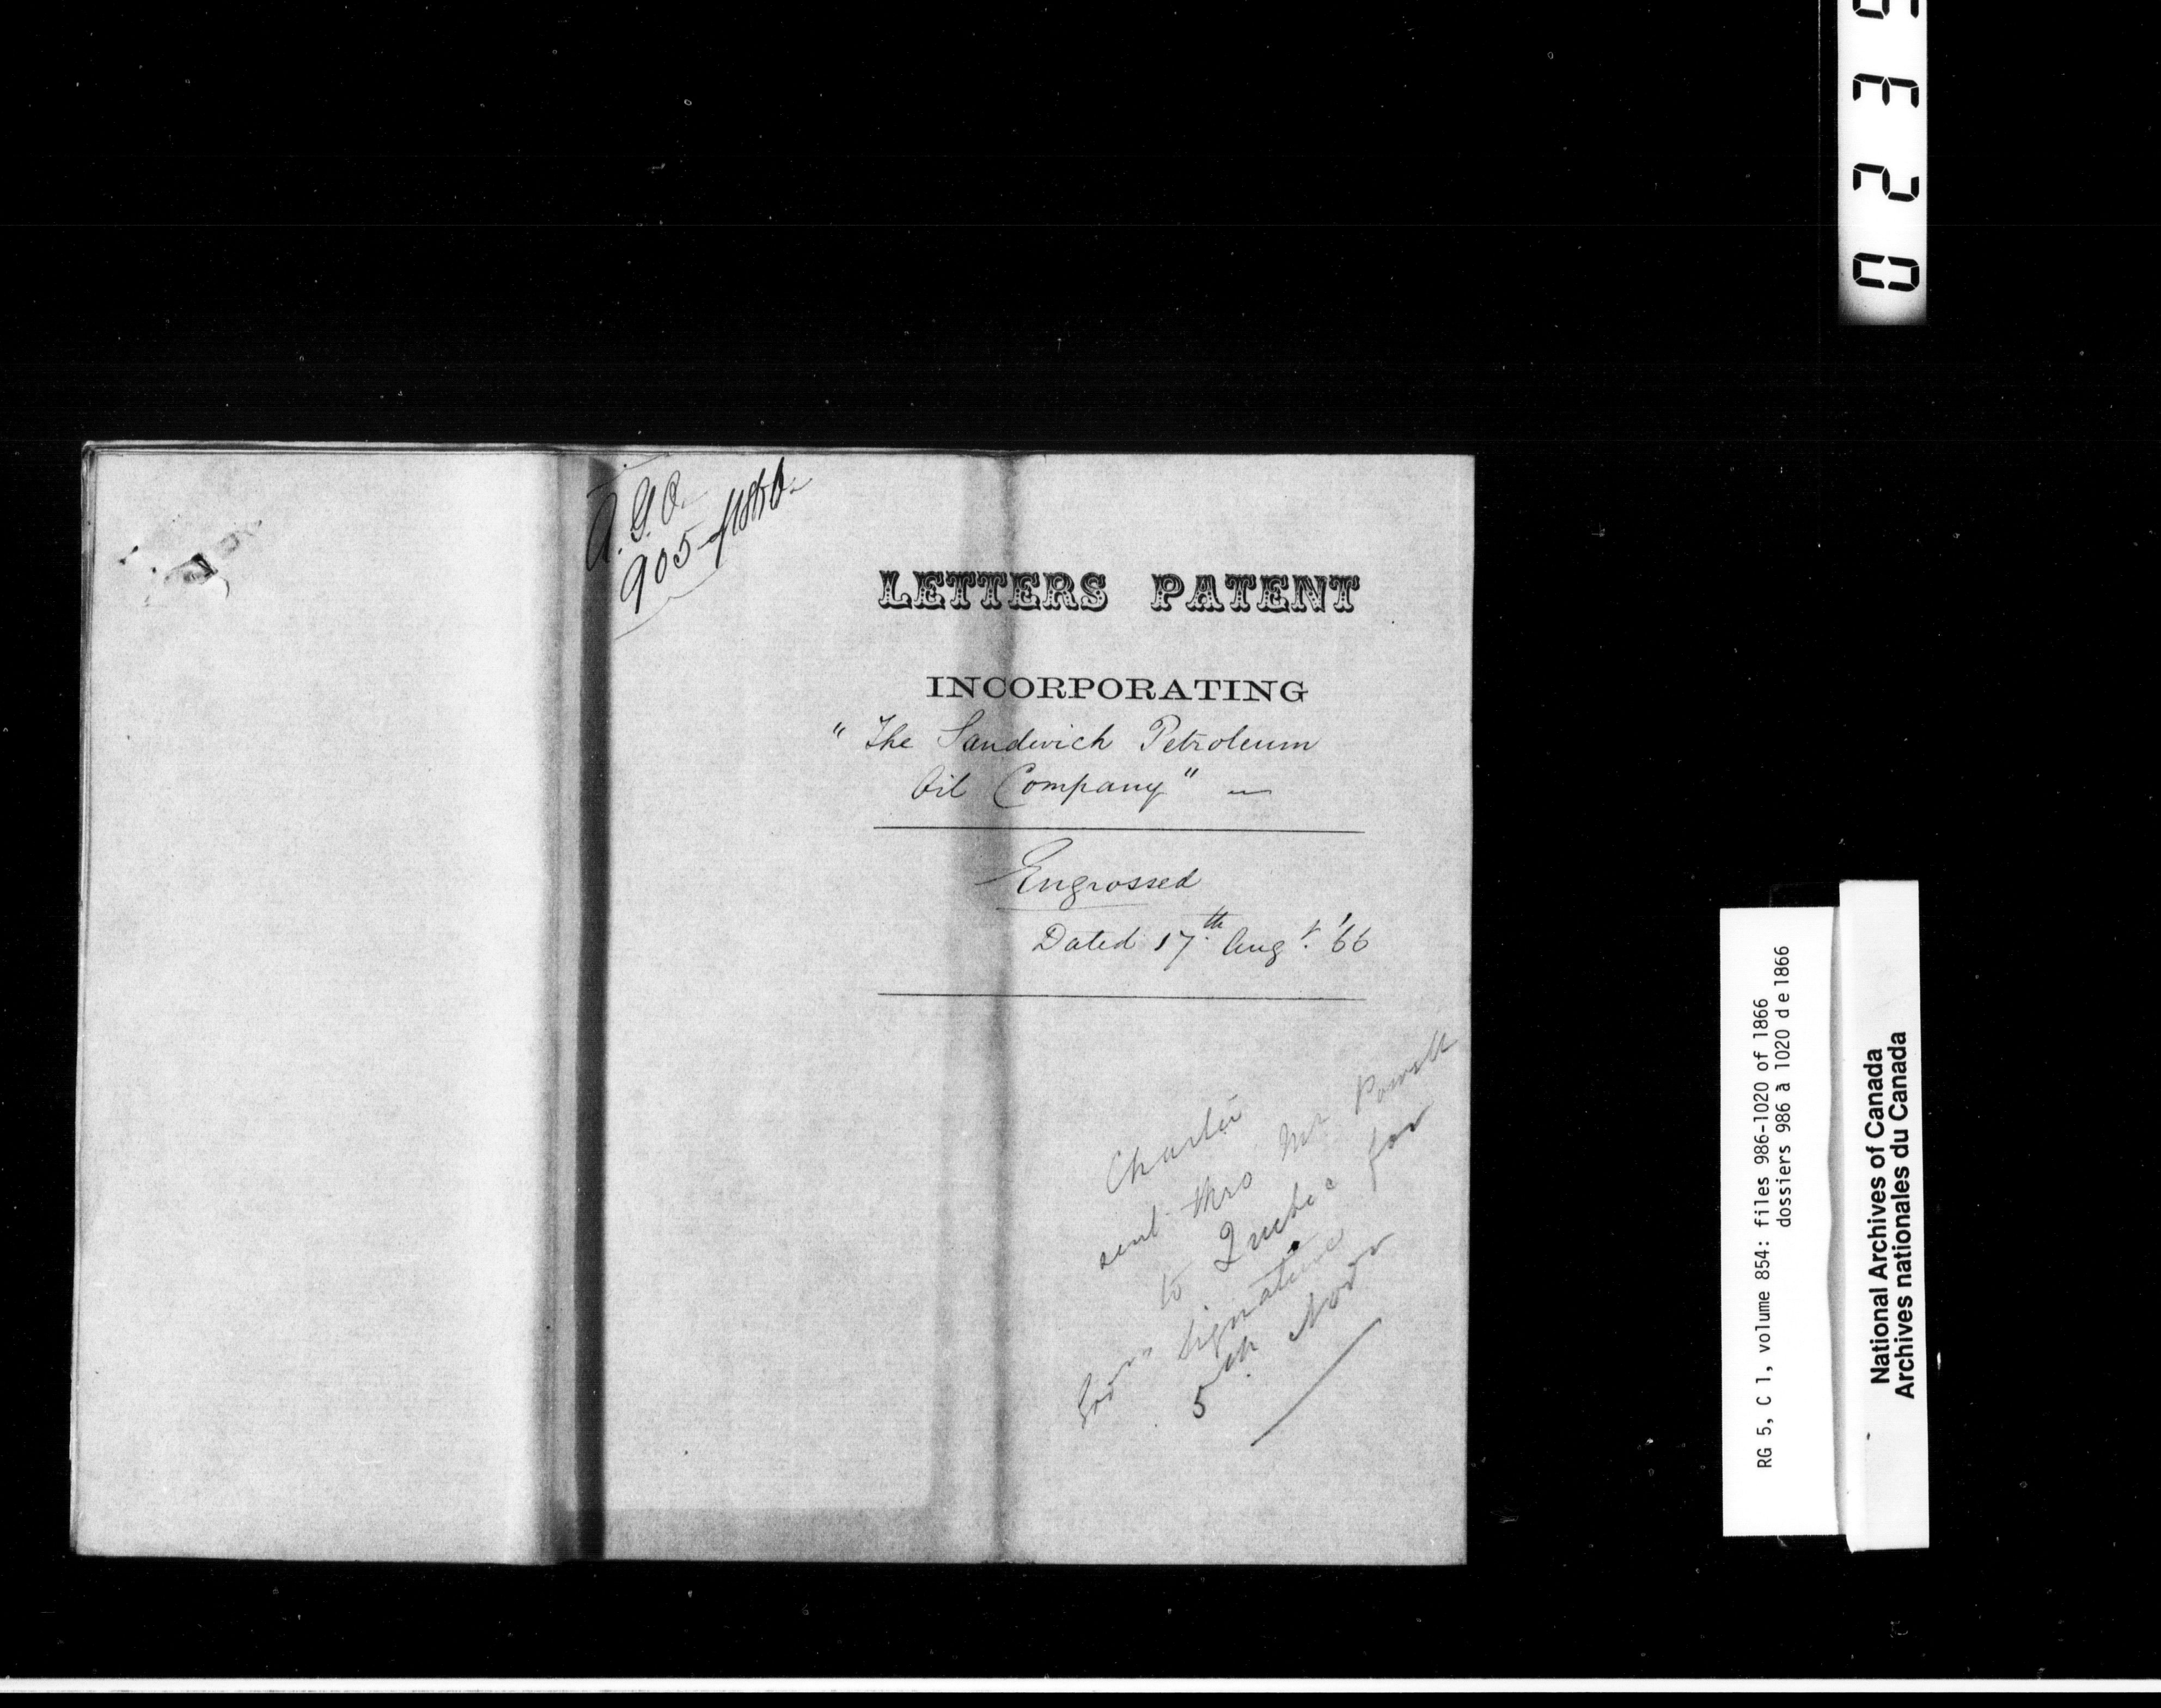 A. G. O.
905 of 1866.
LETTERS PATENT
INCORPORATING
"The Sandwich Petroleum
Oil Company"
Engrossed
Dated 17th Augt. '66
Charter
sent thro Mr Powell
to Quebec for
Govrs Signature
5th Novr
0 2 3 9
RG 5, C 1, volume 854: files 986-1020 of 1866
dossiers 986 à 1020 de 1866
National Archives of Canada
Archives nationales du Canada